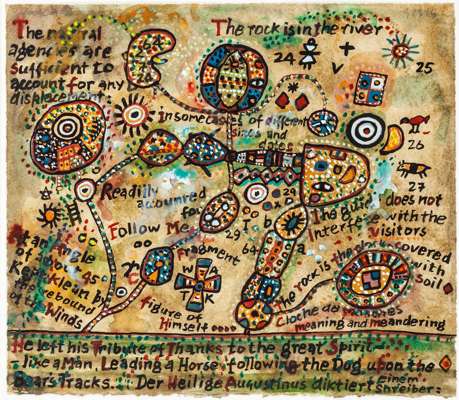 The natural
agencies are
sufficient to
account for any
displacement.
The rock is in the river
64
24
25
In some cases of different
sizes und
dates
26
27
Readily
accounred
for
Follow Me
29
29
The guide does not
Interfere with the
visitors
an angle
of about 45
Kept clean by
the rebound
of the
Winds
Fragment
64
I b
a
figure of
Himself
W
A
K
The rock is the covered
with
soil
Cloche de
meaning and meandering
He left his Tribute of Thanks to the great Spirit
like a Man, Leading a Horse following the Dog upon the
Bears Tracks... Der Heilige Augustinus diktiert einem
Shreiber: